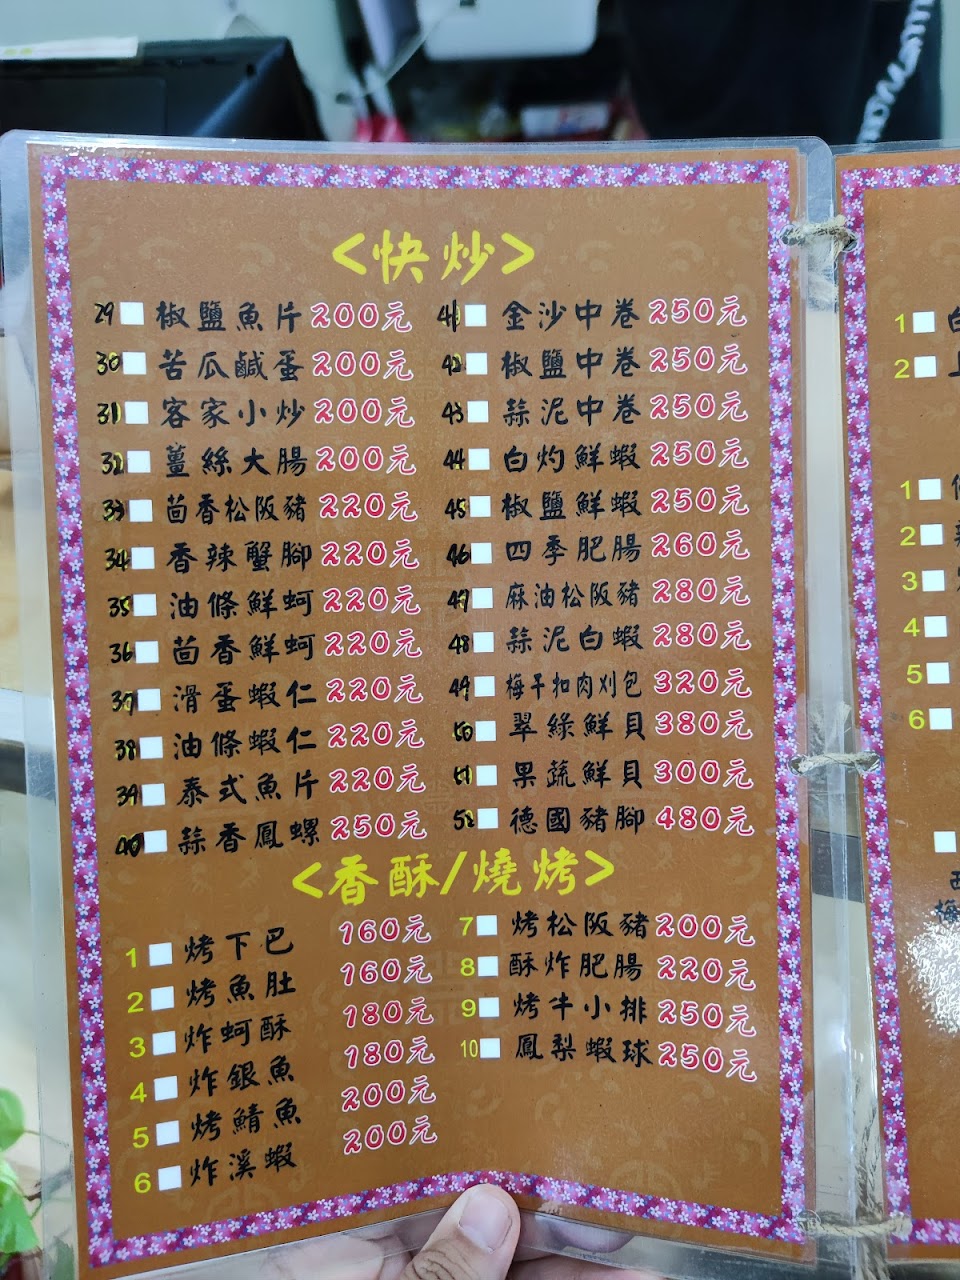 <快炒>
29 椒鹽魚片 200元
30 苦瓜鹹蛋 200元
31 客家小炒 200元
32 薑絲大腸 200元
33 茴香松阪豬 220元
34 香辣蟹腳 220元
35 油條鮮蚵 220元
36 茴香鮮蚵 220元
37 滑蛋蝦仁 220元
38 油條蝦仁 220元
39 泰式魚片 220元
40 蒜香鳳螺 250元
41 金沙中卷 250元
42 椒鹽中卷 250元
43 蒜泥中卷 250元
44 白灼鮮蝦 250元
45 椒鹽鮮蝦 250元
46 四季肥腸 260元
47 麻油松阪豬 280元
48 蒜泥白蝦 280元
49 梅干扣肉刈包 320元
50 翠綠鮮貝 380元
51 果蔬鮮貝 300元
52 德國豬腳 480元
<香酥/燒烤>
1 烤下巴 160元
2 烤魚肚 160元
3 炸蚵酥 180元
4 炸銀魚 180元
5 烤鯖魚 200元
6 炸溪蝦 200元
7 烤松阪豬 200元
8 酥炸肥腸 220元
9 烤牛小排 250元
10 鳳梨蝦球 250元
1
2
1
2
3
4
5
6